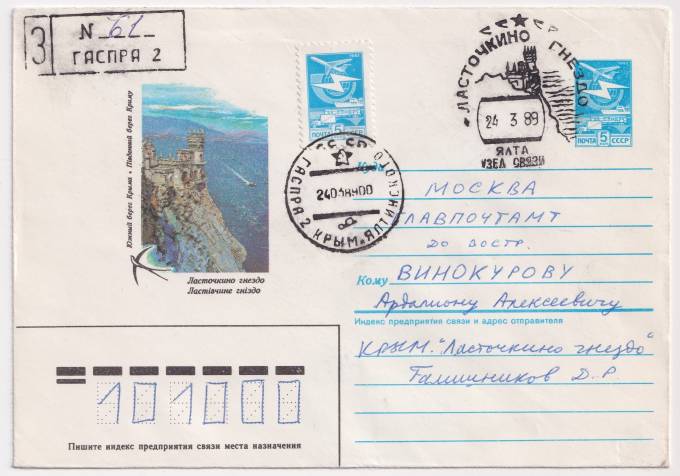 З
N 61
ГАСПРА 2
Южный берег Крыма • Південний берег Криму
Ласточкино гнездо
Ластівчине гніздо
ПОЧТА 5 СССР
СССР
ГАСПРА 2 КРЫМ. ЯЛТИНСКОГО
ЛАСТОЧКИНО ГНЕЗДО
24 3 89
ЯЛТА
УЗЕЛ СВЯЗИ
ПОЧТА 5 СССР
Куда
МОСКВА
ГЛАВПОЧТАМТ
до востр.
Кому ВИНОКУРОВУ
Ардалиону Алексеевичу
Индекс предприятия связи и адрес отправителя
КРЫМ. "Ласточкино гнездо"
Д.Р.
101000
Пишите индекс предприятия связи места назначения